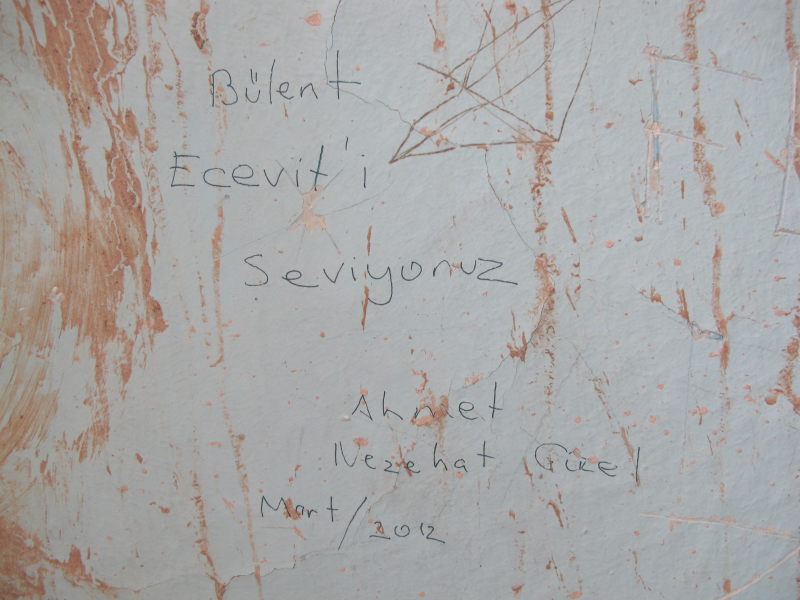 Bülent
Ecevit'i
Seviyoruz
Ahmet
Nezehat Güzel
Mart/2012